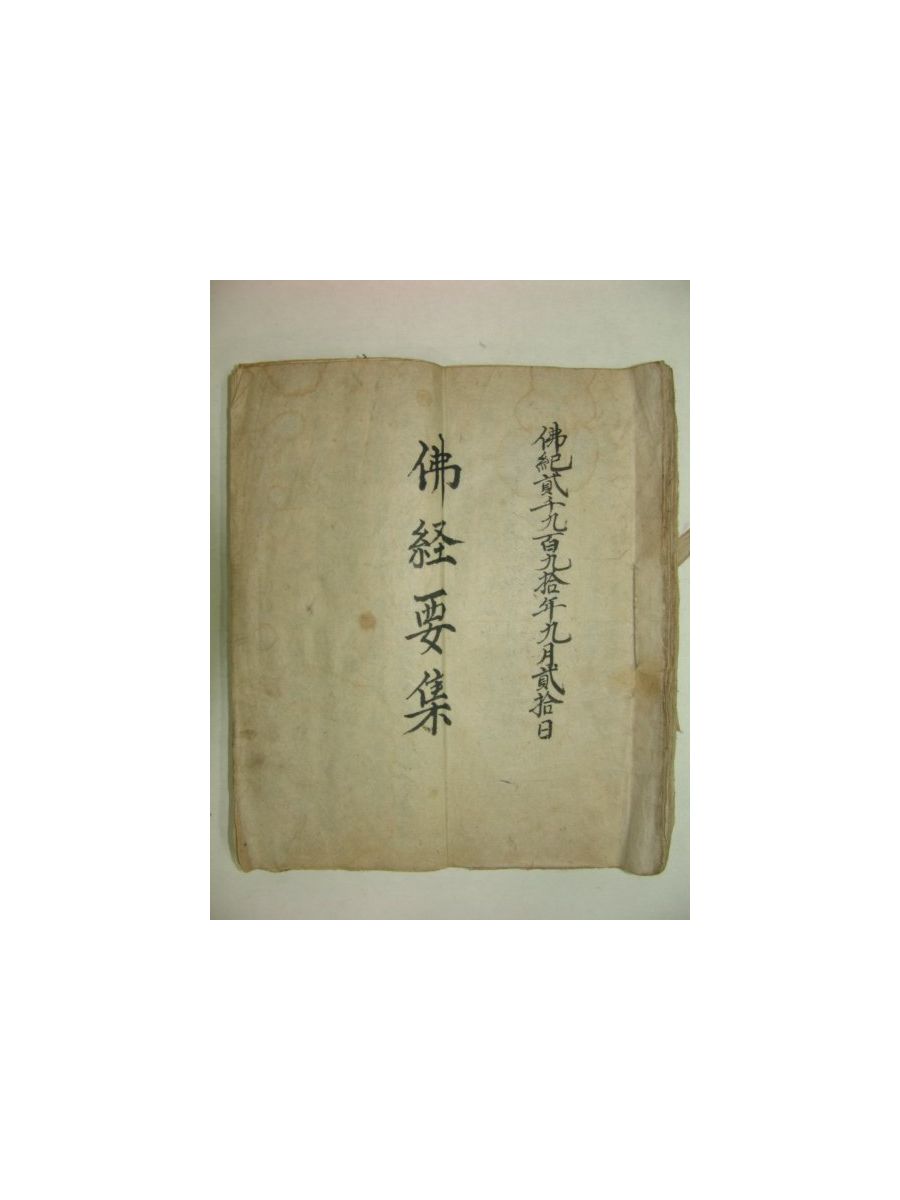 佛紀貳千九百九拾年九月貳拾日
佛経要集